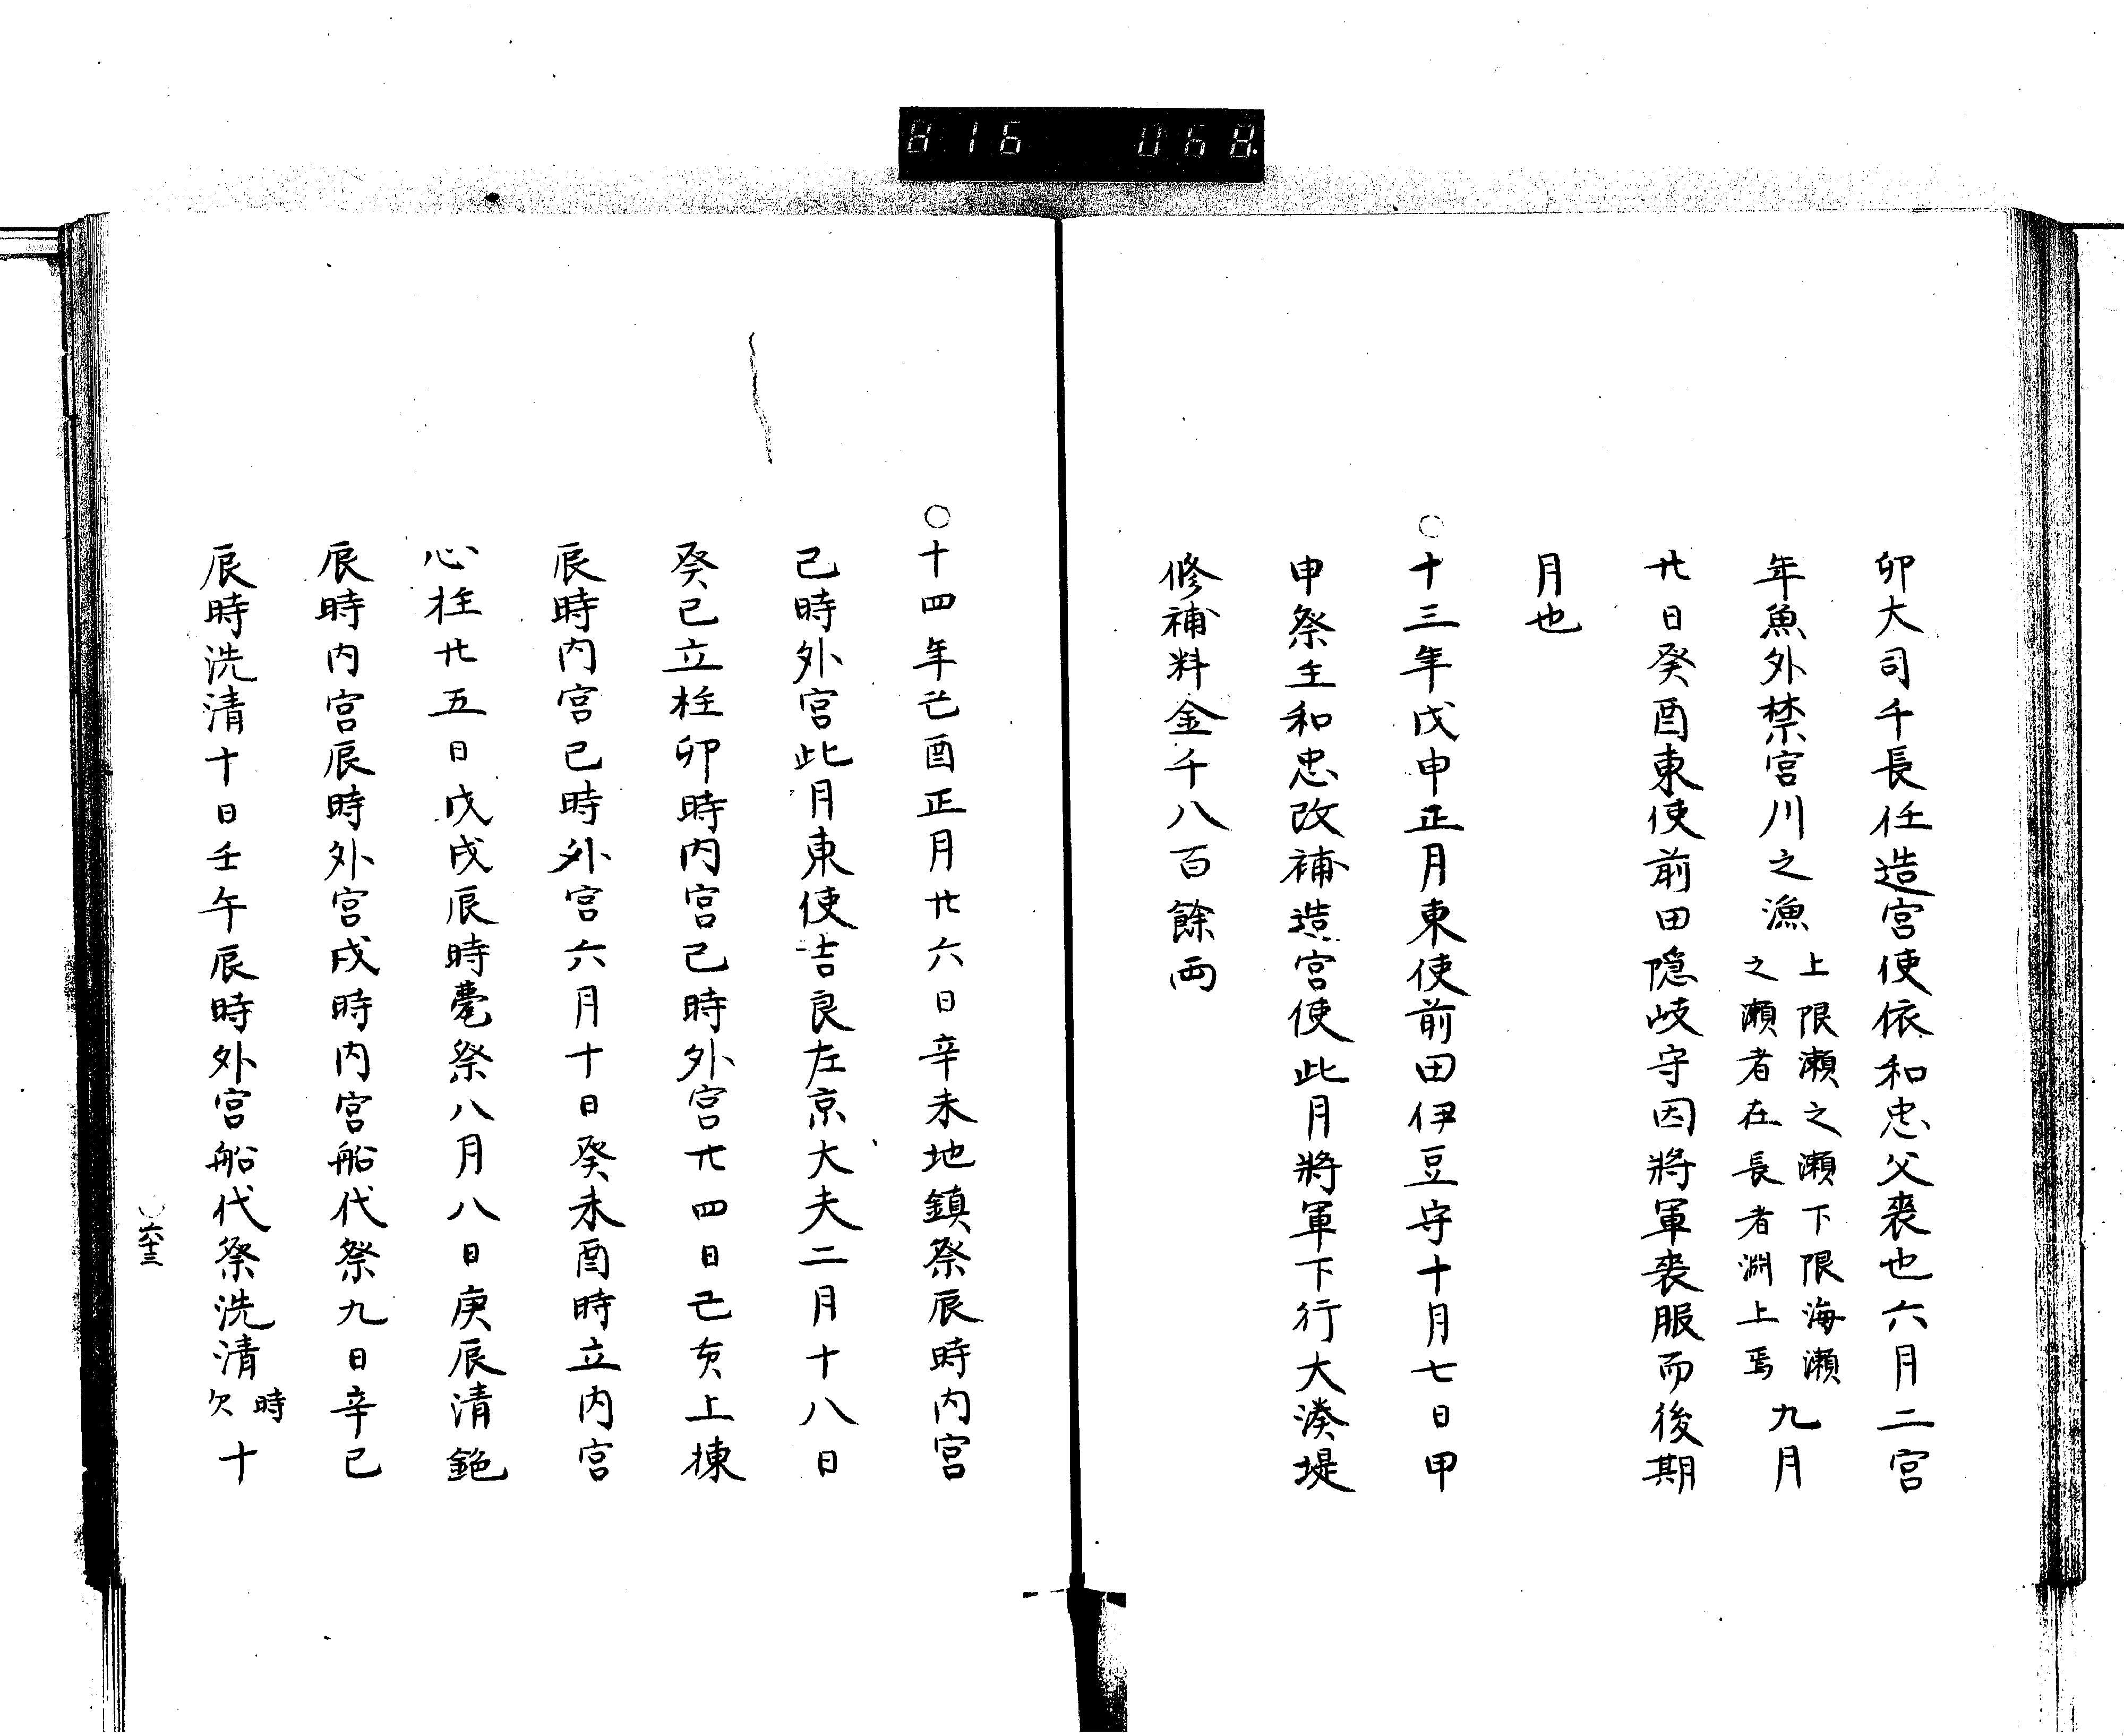 816 068
卯大司千長任造宮使依和忠父喪也六月二宮
年魚外禁宮川之漁上限瀬之瀬下限海瀬之瀬者在長者淵上焉九月
廿日癸酉東使前田隠岐守因將軍喪服而後期
月也
○十三年戊申正月東使前田伊豆守十月七日甲
申祭主和忠改補造宮使此月將軍下行大湊堤
修補料金千八百餘両
○十四年己酉正月廿六日辛未地鎮祭辰時内宮
己時外宮此月東使吉良左京大夫二月十八日
癸己立柱卯時内宮己時外宮廿四日己亥上棟
辰時内宮己時外宮六月十日癸未酉時立内宮
心柱廿五日戊戌辰時甍祭八月八日庚辰清鉋
辰時内宮辰時外宮戌時内宮船代祭九日辛己
辰時洗清十日壬午辰時外宮船代祭洗清時欠十
六十三